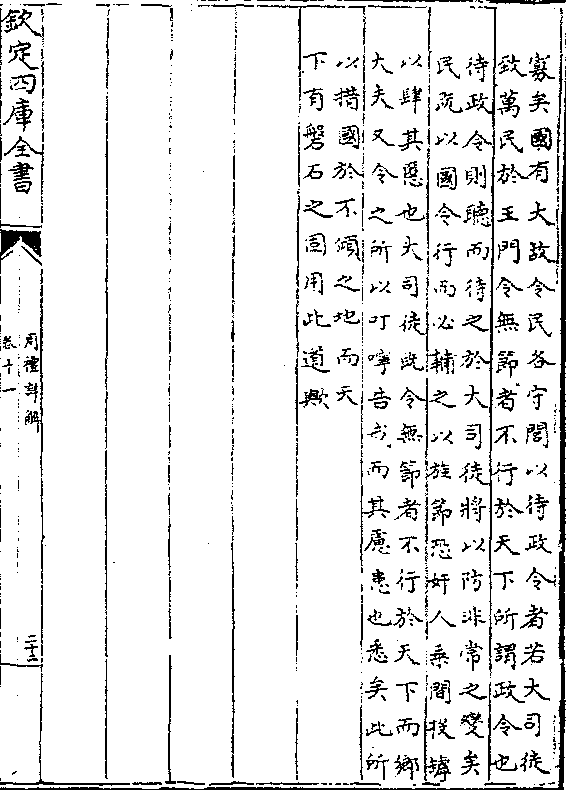 寡矣國有大故令民各守閭以待政令者若大司徒
致萬民於王門令無節者不行於天下所謂政令也
待政令則聽而待之於大司徒將以防非常之變矣
民既以國令行而必輔之以旌節恐奸人乗間投罅
以肆其慝也大司徒既令無節者不行於天下而鄉
大夫又令之所以叮嚀告戒而其慮患也悉矣此所
以措國於不傾之地而天
下有磐石之固用此道歟
欽定四庫全書
周禮詳解
卷十一
二十二